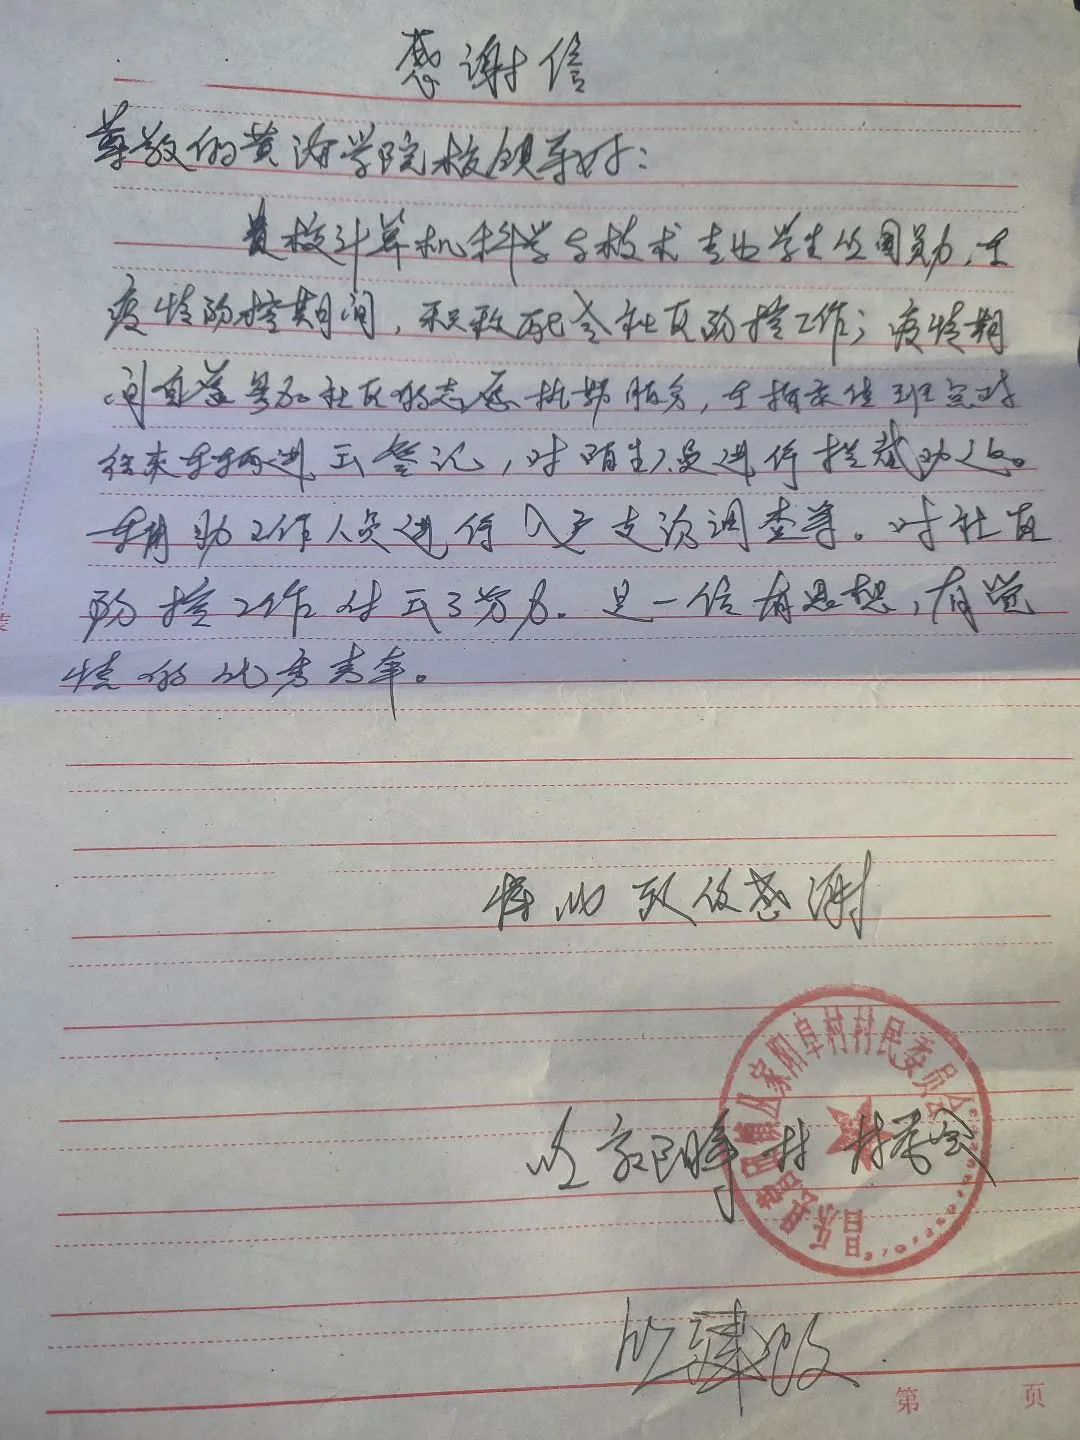 感谢信
尊敬的黄海学院校领导好：
贵校计算机科学与技术专业学生丛国勋，在
疫情防控期间，积极配合社区防控工作；疫情期
间自愿参加社区的志愿执勤服务，在指示值班点对
往来车辆进行登记，对陌生人员进行拦截劝返。
辅助工作人员进行入户走访调查等。对社区
防控工作付出了努力。是一位有思想，有觉
悟的优秀青年。
特此致以感谢
丛家阳阜村 村委会
昌乐县 丛家阳阜村村民委员会
第 页